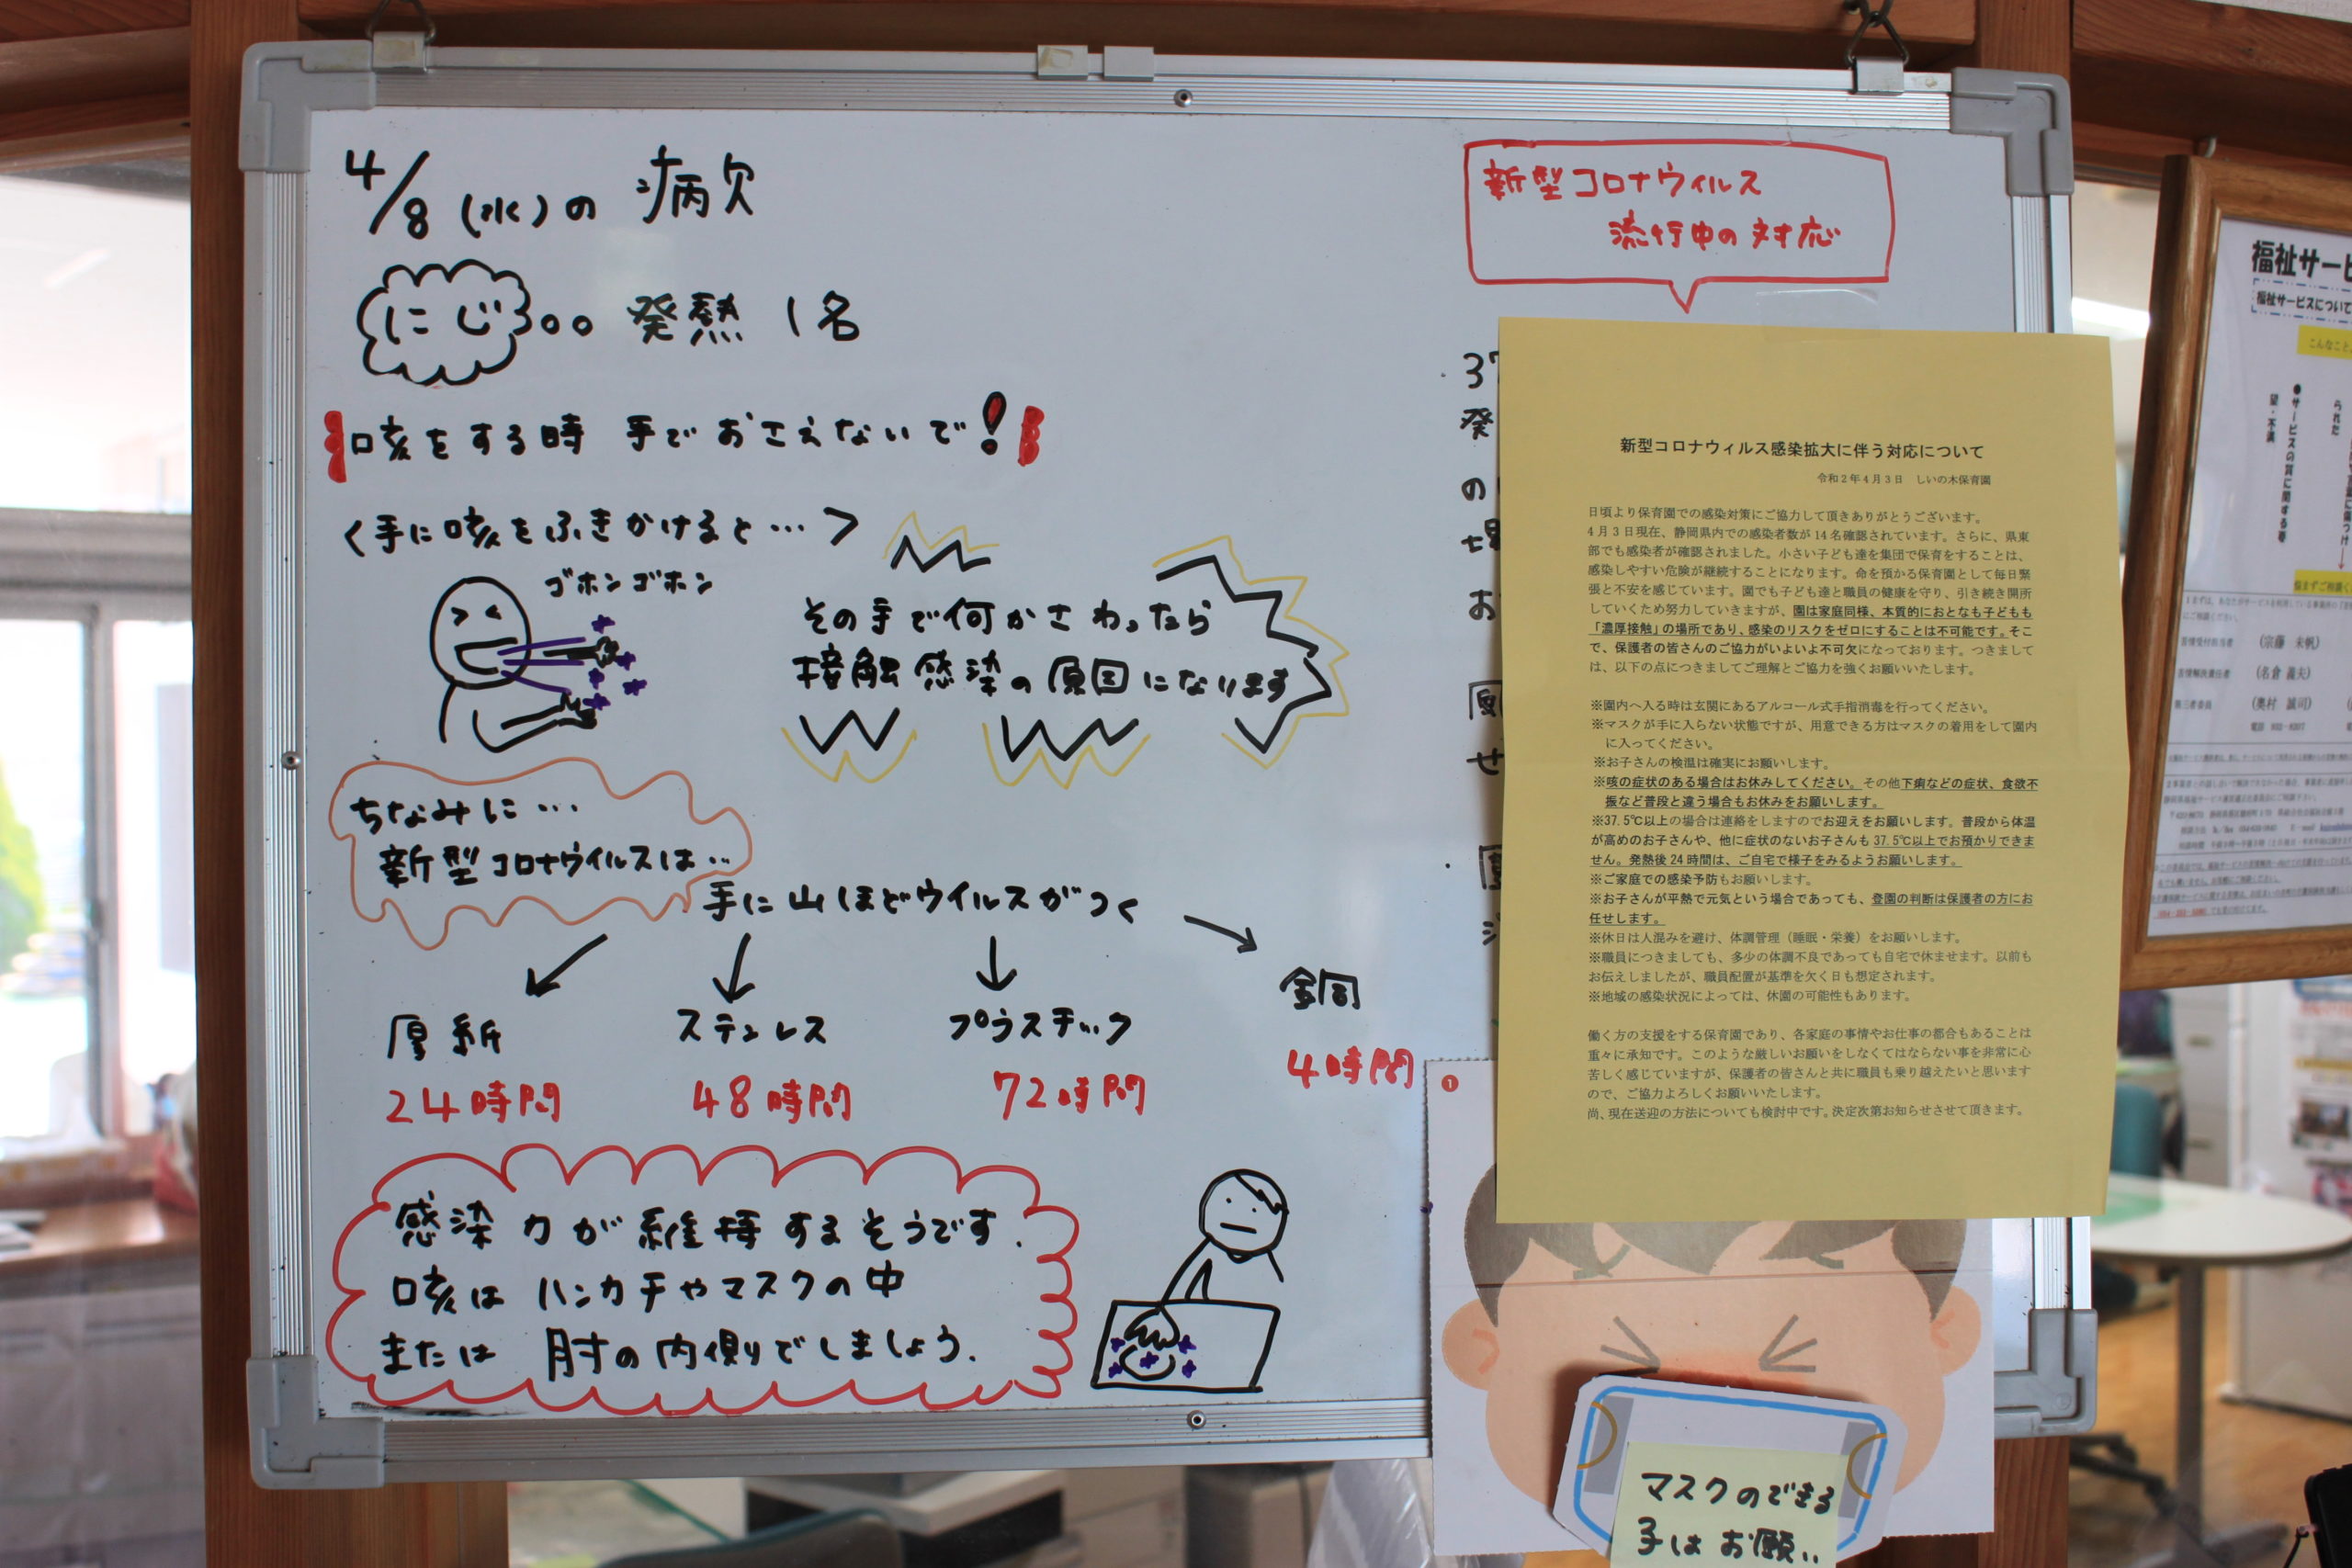 4/8(水)の 病欠
にじ 発熱 1名
咳をする時 手でおさえないで!
<手に咳をふきかけると…>
ゴホンゴホン
その手で何かさわったら
接触感染の原因になります
ちなみに…
新型コロナウイルスは…
手に山ほどウイルスがつく
厚紙
ステンレス
プラスチック
銅
24時間
48時間
72時間
4時間
感染力が維持するそうです.
咳はハンカチやマスクの中
または 肘の内側でしましょう.
新型コロナウィルス
流行中の対応
37
発
の
お
せ
新型コロナウィルス感染拡大に伴う対応について
令和2年4月3日 しいの木保育園
日頃より保育園での感染対策にご協力して頂きありがとうございます。
4月3日現在、静岡県内での感染者数が14名確認されています。さらに、県東
部でも感染者が確認されました。小さい子ども達を集団で保育をすることは、
感染しやすい危険が継続することになります。命を預かる保育園として毎日緊
張と不安を感じています。園でも子ども達と職員の健康を守り、引き続き開所
していくため努力していきますが、園は家庭同様、本質的におとなも子どもも
「濃厚接触」の場所であり、感染のリスクをゼロにすることは不可能です。そこ
で、保護者の皆さんのご協力がいよいよ不可欠になっております。つきまして
は、以下の点につきましてご理解とご協力を強くお願いいたします。
※園内へ入る時は玄関にあるアルコール式手指消毒を行ってください。
※マスクが手に入らない状態ですが、用意できる方はマスクの着用をして園内
に入ってください。
※お子さんの検温は確実にお願いします。
※咳の症状のある場合はお休みしてください。その他下痢などの症状、食欲不
振など普段と違う場合もお休みをお願いします。
※37.5℃以上の場合は連絡をしますのでお迎えをお願いします。普段から体温
が高めのお子さんや、他に症状のないお子さんも37.5℃以上でお預かりできま
せん。発熱後24時間は、ご自宅で様子をみるようお願いします。
※ご家庭での感染予防もお願いします。
※お子さんが平熱で元気という場合であっても、登園の判断は保護者の方にお
任せします。
※休日は人混みを避け、体調管理(睡眠・栄養)をお願いします。
※職員につきましても、多少の体調不良であっても自宅で休ませます。以前も
お伝えしましたが、職員配置が基準を欠く日も想定されます。
※地域の感染状況によっては、休園の可能性もあります。
働く方の支援をする保育園であり、各家庭の事情やお仕事の都合もあることは
重々に承知です。このような厳しいお願いをしなくてはならない事を非常に心
苦しく感じていますが、保護者の皆さんと共に職員も乗り越えたいと思います
ので、ご協力よろしくお願いいたします。
尚、現在送迎の方法についても検討中です。決定次第お知らせさせて頂きます。
1
マスクのできる
子はお願い
福祉サービ
福祉サービスについて
こんなこと
●サービスの質に関する要
望・不満
(宗藤 未帆)
(名倉 義夫)
(奥村 誠司)